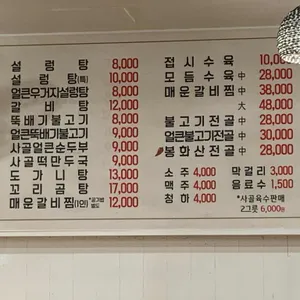 설렁탕 8,000
설렁탕(특) 10,000
얼큰우거지설렁탕 8,000
갈비탕 12,000
뚝배기불고기 8,000
얼큰뚝배기불고기 9,000
사골얼큰순두부 9,000
사골떡만두국 9,000
도가니탕 13,000
꼬리곰탕 17,000
매운갈비찜(1인) *공기밥 별도 12,000
접시수육 10,000
모듬수육 中 28,000
매운갈비찜 中 38,000
大 48,000
불고기전골 中 28,000
얼큰불고기전골 中 30,000
봉화산전골 中 28,000
소주 4,000 막걸리 3,000
맥주 4,000 음료수 1,500
청하 4,000 *사골육수판매
2그릇 6,000원